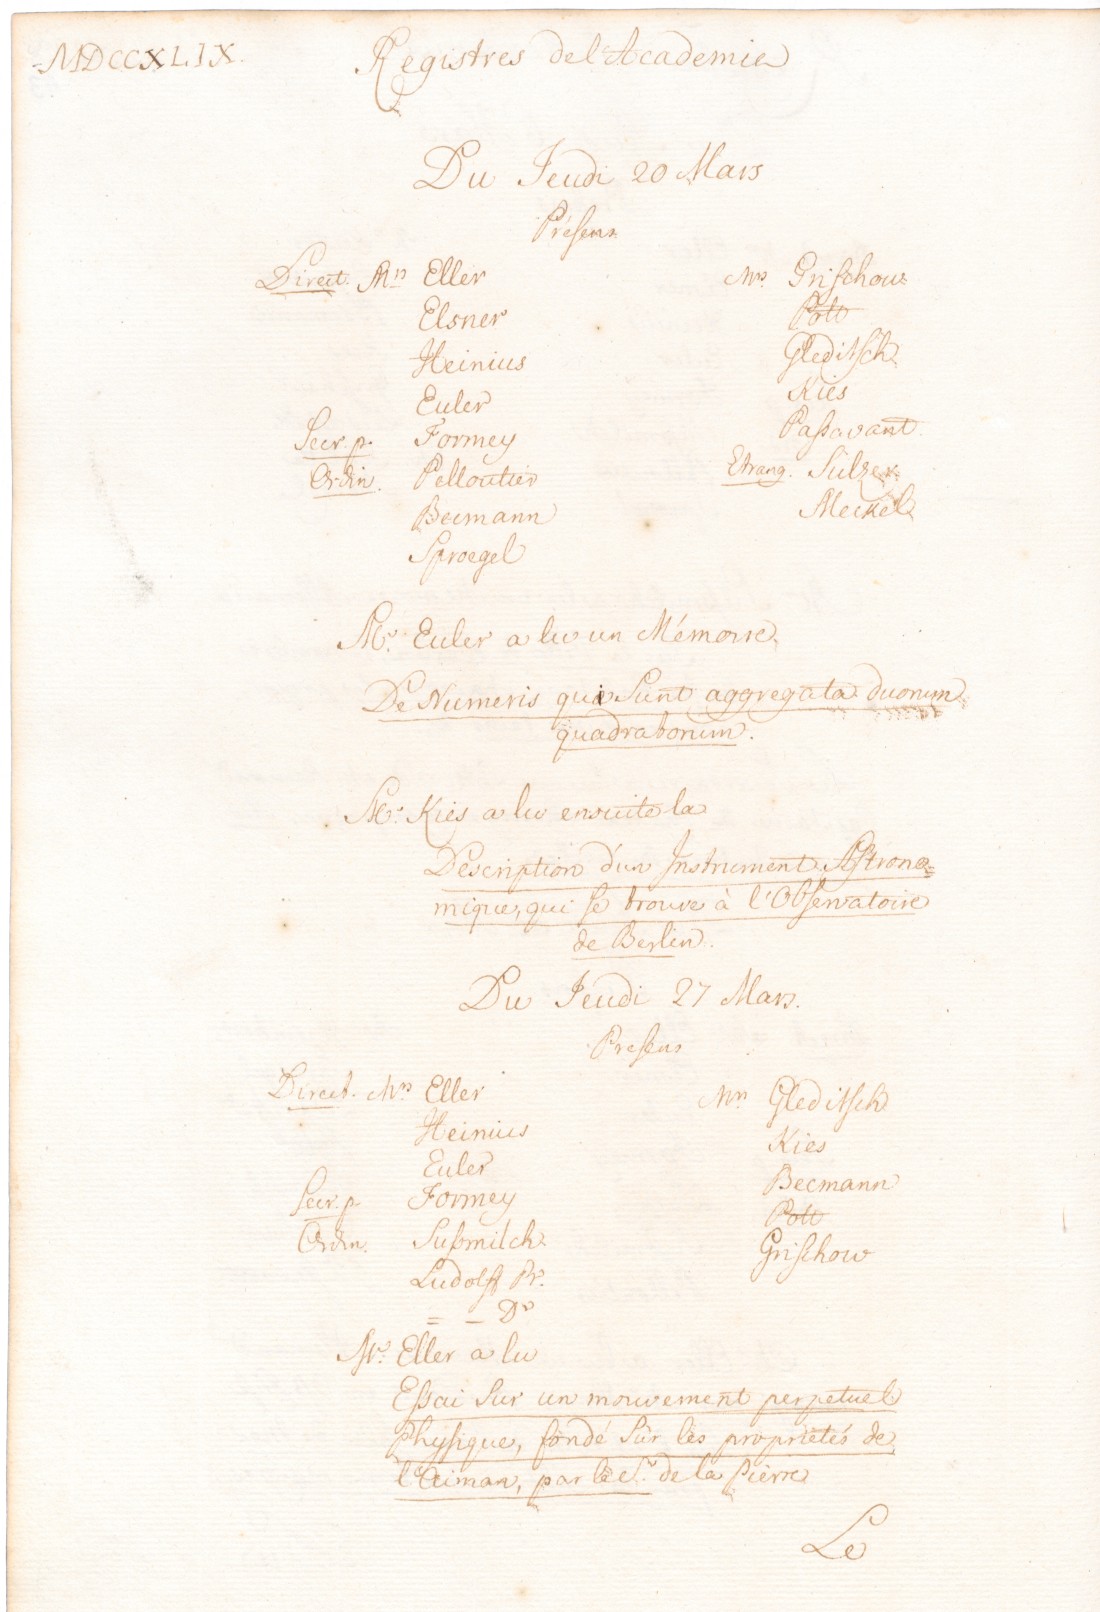 MDCCXLIX.
Registres de l'Academie
Du Jeudi 20 Mars
Présens
Direct. Mrs Eller
Elsner
Heinius
Euler
Secr. p. Formey
Ordin. Pelloutier
Becmann
Sproegel
Mrs. Grischow
Pott
Gleditsch
Kies
Passavant.
Etrang. Sulzer
Meckel
Mr. Euler a lu un Mémoire,
De Numeris qui sunt aggregata duorum
quadratorum.
Mr. Kies a lu ensuite la
Description d'un Instrument Astrono=
mique, qui se trouve à l'Observatoire
de Berlin.
Du Jeudi 27 Mars.
Presens
Direct. Mrs Eller
Heinius
Euler
Secr. p. Formey
Ordin. Susmilch
Ludolff Pr.
= _ Dr
Mrs Gleditsch
Kies
Becmann
Pott
Grischow
Mr. Eller a lu
Essai sur un mouvement perpetuel
Physique, fondé sur les proprietés de
l'Aiman, par le Sr. de la Pierre
Le